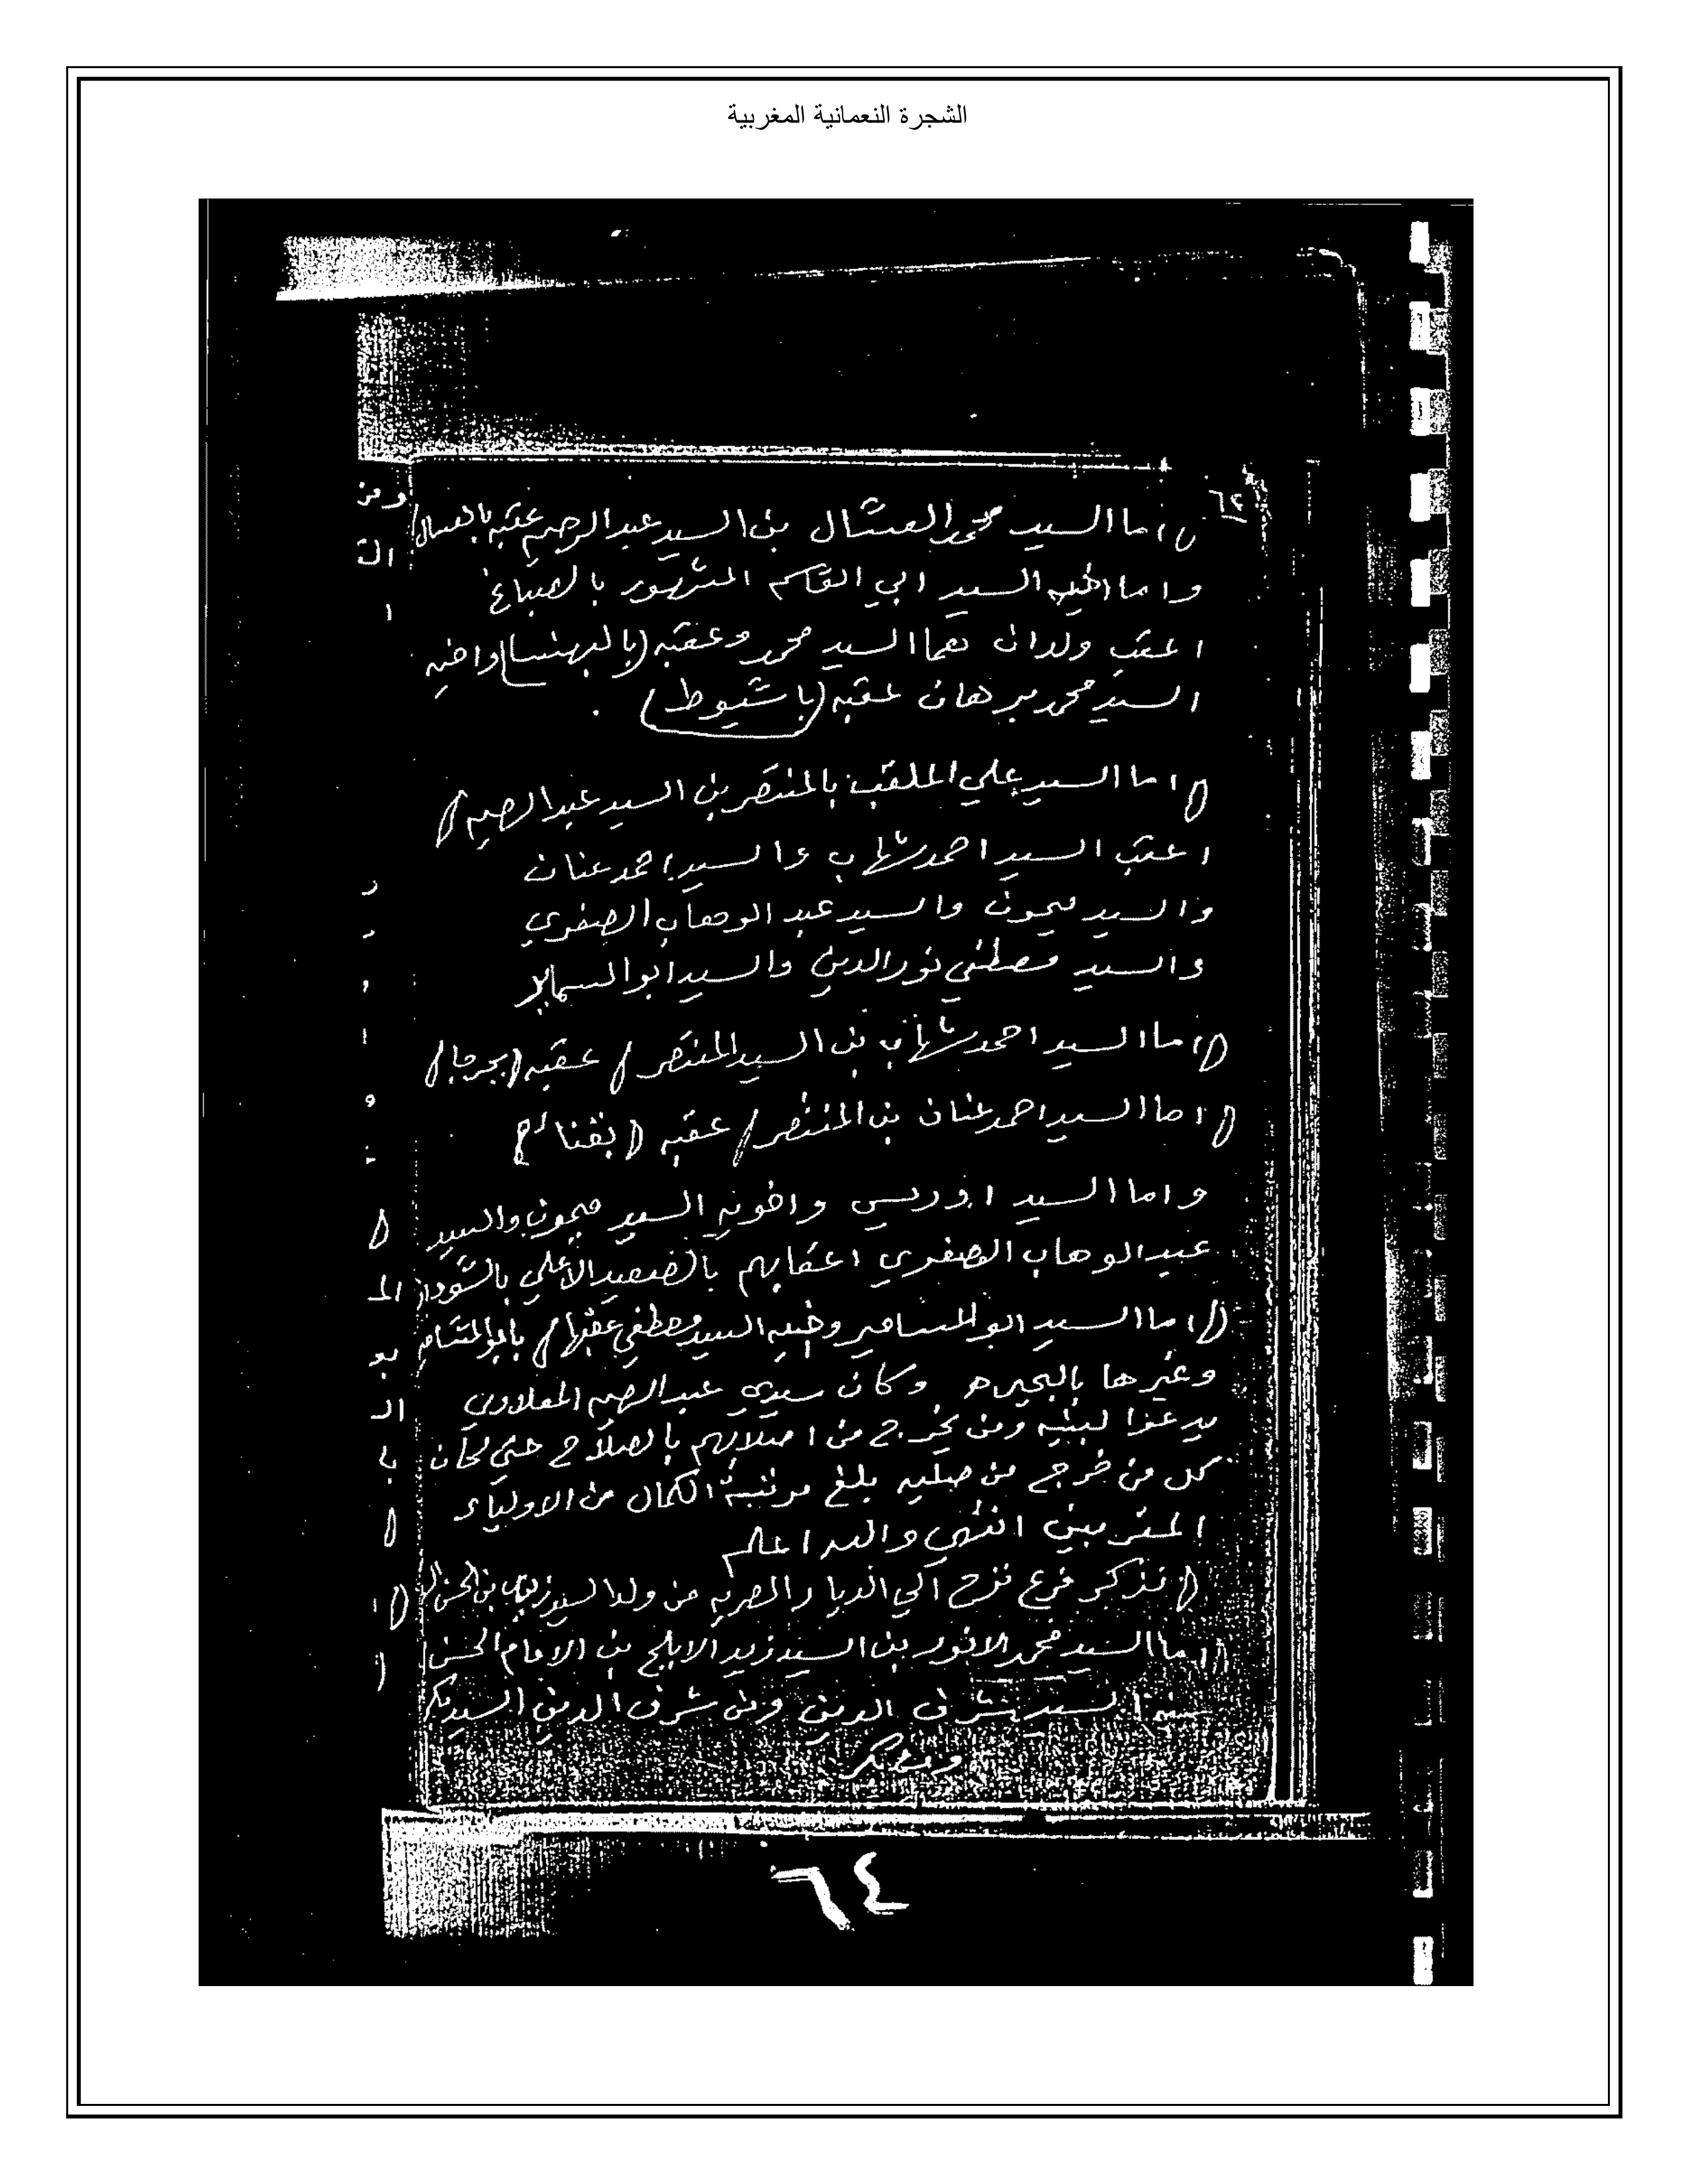 الشجرة النعمانية المغربية
٦٢
اما السيد محمد العشال بن السيد عبد الرحيم عقبه بالعسال
واما اخيه السيد ابي القاسم المشهور بالصباغ
اعقب ولدان هما السيد محمد وعقبه (بالبهنسا) واخيه
السيد محمد برهان عقبه (باشيوط) .
(اما السيد علي الملقب بالمنتصر بن السيد عبد الرحيم)
اعقب السيد احمد شهاب والسيد احمد عنان
والسيد ميمون والسيد عبد الوهاب الصفري
والسيد مصطفي نور الدين والسيد ابو المسامير
(اما السيد احمد شهاب بن السيد المنتصر) عقبه (بجرجا)
(اما السيد احمد عنان بن المنتصر) عقبه (بقنا)
واما السيد ادريس واخوته السيد ميمون والسيد
عبد الوهاب الصفري اعقابهم بالصعيد الاعلي بالسودان
(اما السيد ابو المسامير واخيه السيد مصطفي عقبها) بابو المسامير
وغيرها بالبحيره وكان سيدي عبد الرحيم
يدعوا لبنيه ومن يخرج من اصلابهم بالصلاح حتي كان
كل من خرج من صلبه بلغ مرتبة الكمال من الاولياء
المقربين انتهي والله اعلم
(نذكر فرع نزح الي الديار المصريه من ولد السيد زيد بن الحسن
(اما السيد محمد الانور بن السيد زيد الابلج بن الامام الحسن
السيد شرف الدين ومن شرف الدين السيد بكر
٦٤